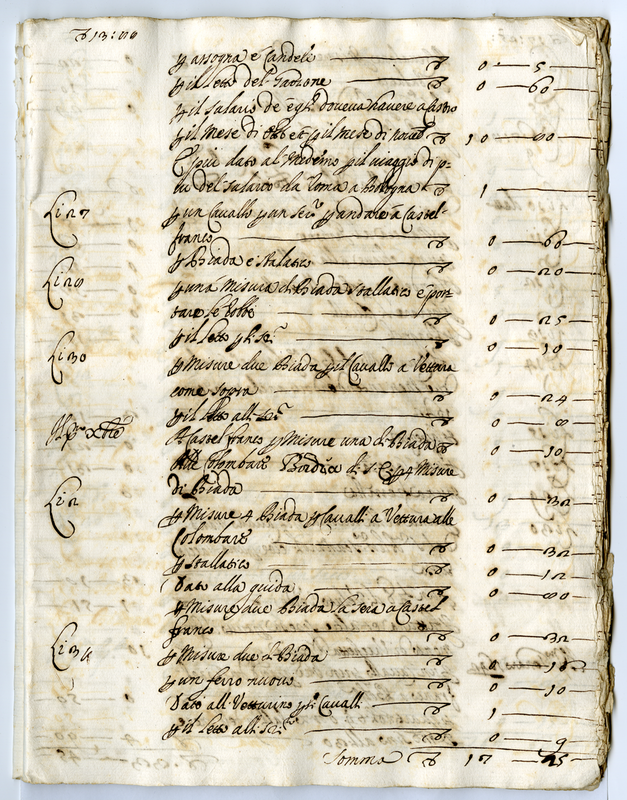 ₰ 13:00
p arsogna e Candele ₰ 0 — 5
p il letto del Garzone ₰ 0 — 60
p il salario de egli doveva havere a Castro
p il mese di Ottbre e p il mese di novēb. ₰ 10 — 60
E più dato al Medemo p il viaggio di p-
iù del salario da Roma a Bologna ₰ 1
Li 27 p un Cavallo p un ser.re p andare a Castel-
franco ₰ 0 — 60
p Biada e stalatico ₰ 0 — 20
Li 29 p una Misura di Biada stallatico e por-
tare le robbe ₰ 0 — 25
p il letto p li se.ri ₰ 0 — 10
Li 30 p Misure due Biada p il Cavallo a Vettura
come sopra ₰ 0 — 24
p il letto alli se.ri ₰ 0 — 8
P.mo Xbre A Castel franco p Misure una di Biada ₰ 0 — 10
Alle Colombare p 4 Misure
di Biada ₰ 0 — 32
Li 2 p Misure 4 Biada p Cavalli a Vettura alle
Colombare ₰ 0 — 32
p stallatico ₰ 0 — 12
Dato alla guida ₰ 0 — 80
p Misure due Biada la sera a Castel
franco ₰ 0 — 32
Li 3 p Misure due di Biada ₰ 0 — 16
p un ferro nuovo ₰ 0 — 10
Dato all Vetturino p li Cavalli ₰ 1
p il letto alli se.ri ₰ 0 — 9
Somma ₰ 17 — 25